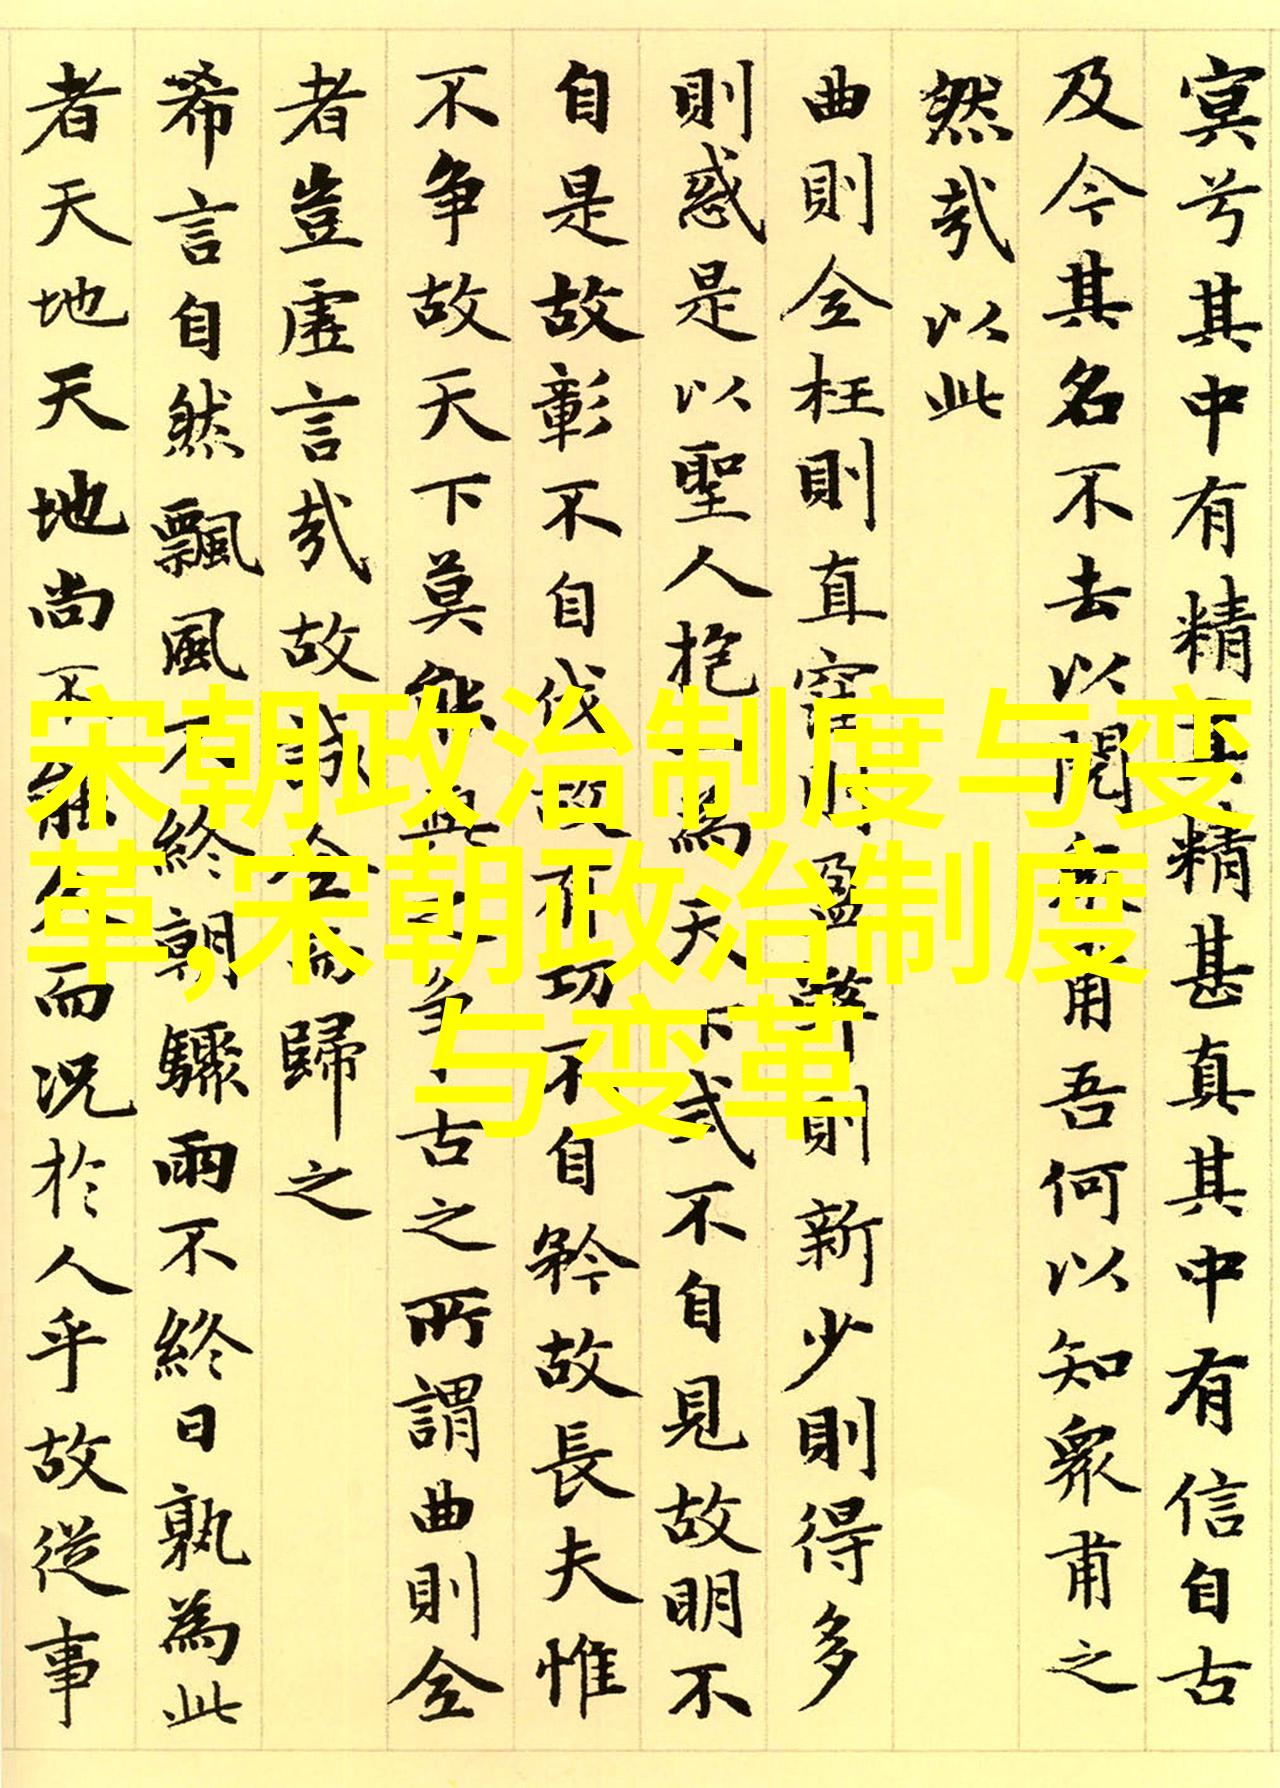 窅兮其中有精其精甚真其中有信自古
及今其名不去以閱衆甫吾何以知衆甫之
然哉以此
曲則全枉則直窪則盈弊則新少則得多
則惑是以聖人抱一為天下式不自見故明不
自是故彰不自伐故有功不自矜故長夫惟
不争故天下莫能與之争古之所謂曲則全
者豈虛言哉故誠全而歸之
希言自然飄風不終朝驟雨不終日孰為此
者天地天地尚不能久而況於人乎故從事
宋朝政治制度与变
革,宋朝政治制度
与变革